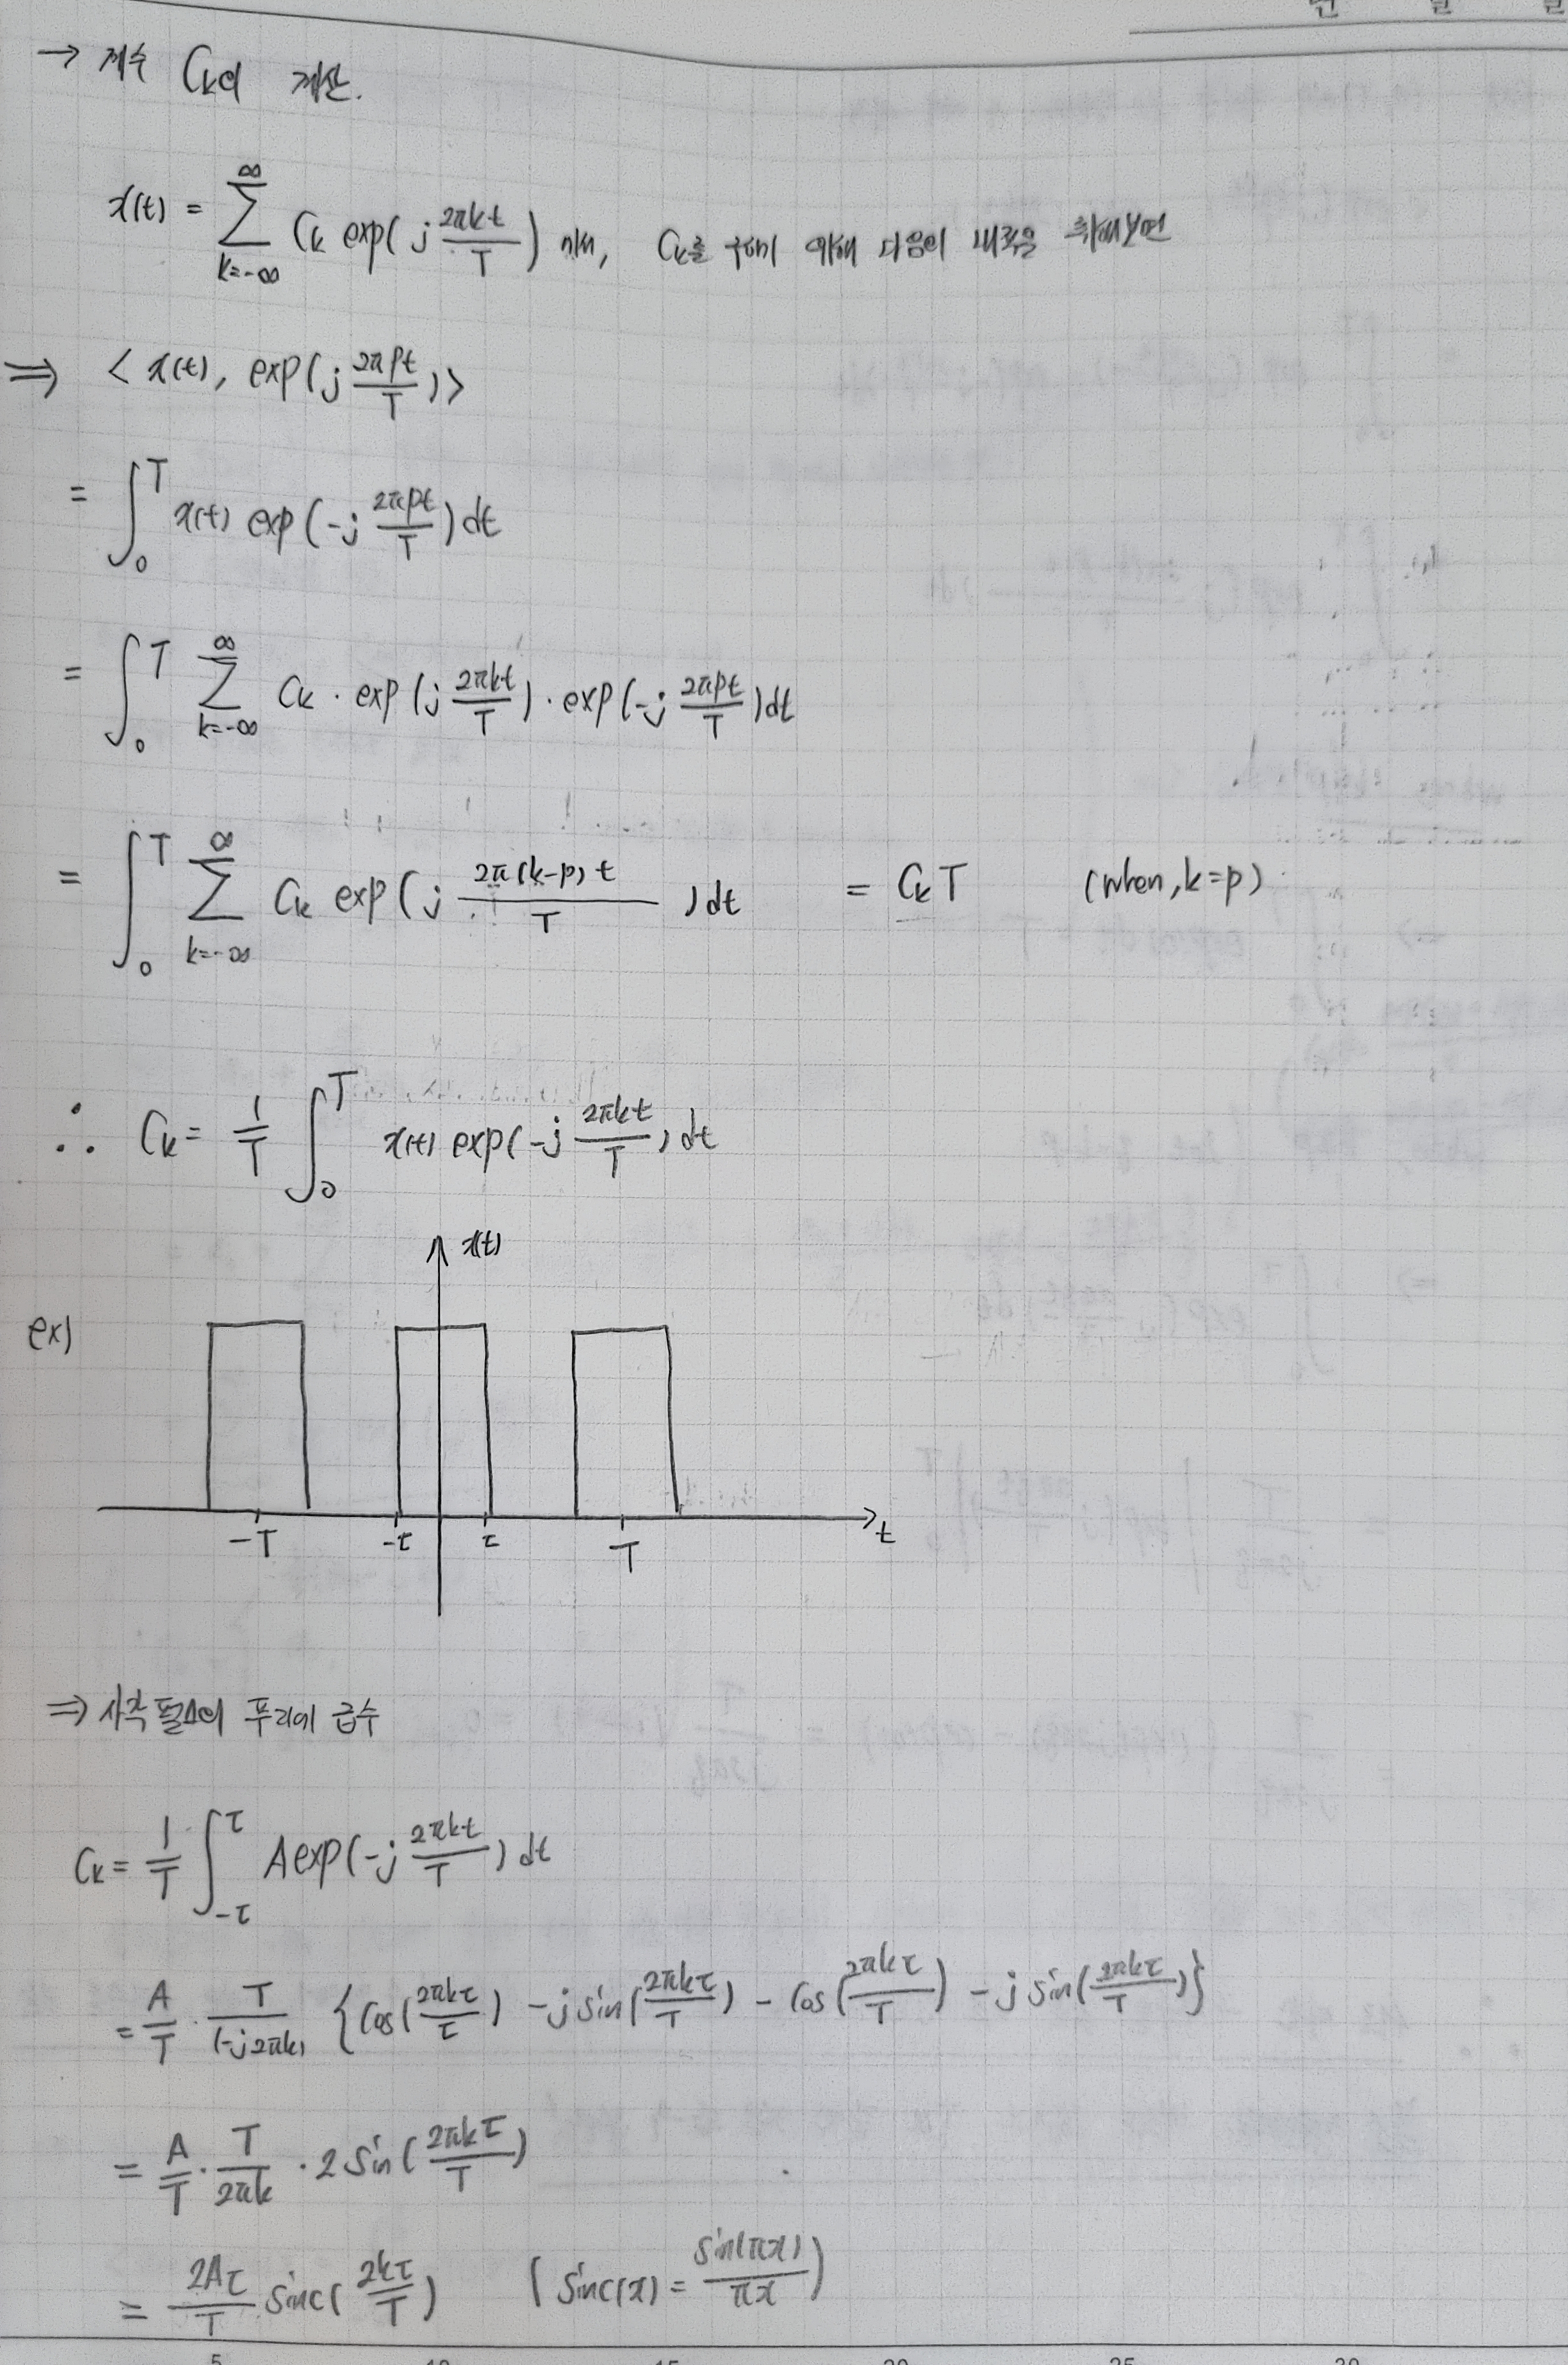 년 월 일
→ 계수 Ck의 계산.
x(t) = ∑_{k=-∞}^{∞} Ck exp(j 2πkt/T) 에서, Ck를 구하기 위해 다음의 내적을 취해보면
⇒ < x(t), exp(j 2πpt/T) >
= ∫_0^T x(t) exp(-j 2πpt/T) dt
= ∫_0^T ∑_{k=-∞}^{∞} Ck · exp(j 2πkt/T) · exp(-j 2πpt/T) dt
= ∫_0^T ∑_{k=-∞}^{∞} Ck exp(j 2π(k-p)t/T) dt = CkT (when, k=p)
∴ Ck = 1/T ∫_0^T x(t) exp(-j 2πkt/T) dt
x(t)
ex)
-T -τ τ T t
⇒ 사각 펄스의 푸리에 급수
Ck = 1/T ∫_{-τ}^{τ} A exp(-j 2πkt/T) dt
= A/T · T/(-j2πk) {cos(2πkτ/τ) - j sin(2πkτ/T) - cos(2πkτ/T) - j sin(2πkτ/T)}
= A/T · T/2πk · 2 sin(2πkτ/T)
= 2Aτ/T sinc(2kτ/T) (sinc(x) = sin(πx)/πx)
5 10 15 20 25 30